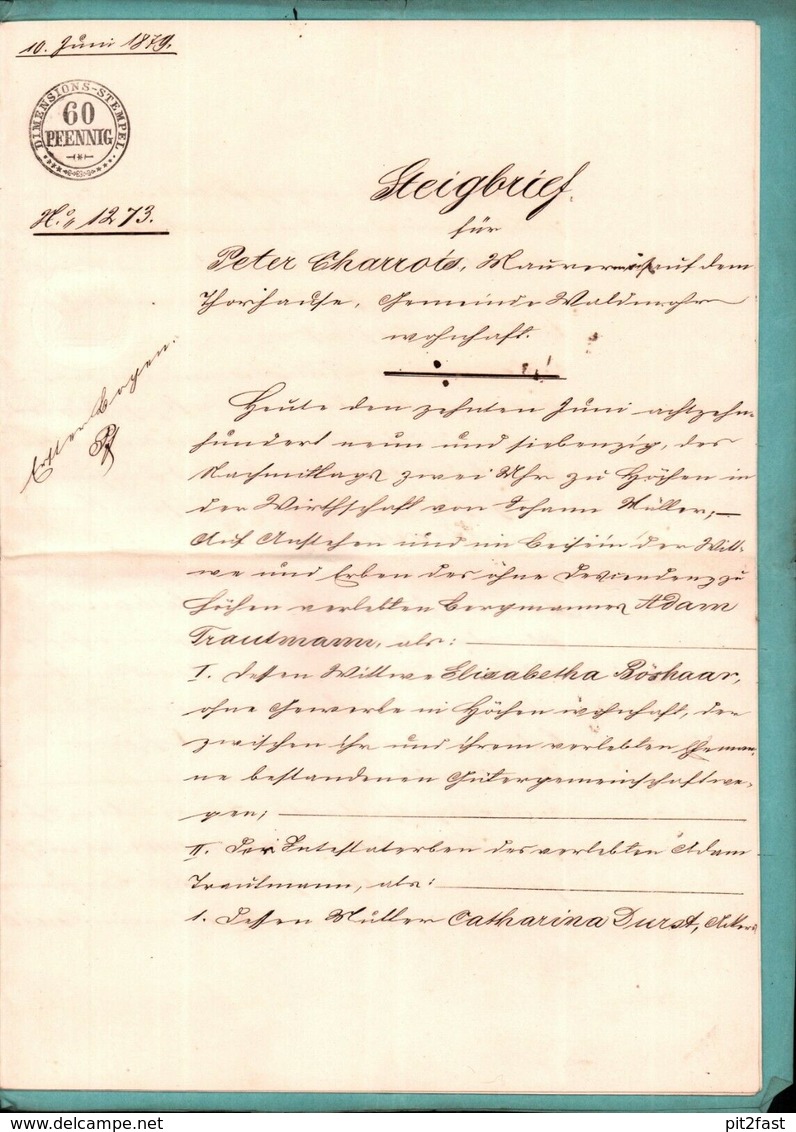 10. Juni 1879.
DIMENSIONS-STEMPEL
60
PFENNIG
N.o 1273.
Erster Bogen.
Steigbrief
für
Peter Charrois, Maurer auf dem
Thorhause, Gemeinde Waldmohr
wohnhaft.
Heute den zehnten Juni achtzehn-
hundert neun und siebenzig, des
Nachmittags zwei Uhr zu Höchen in
der Wirthschaft von Johann Müller,
Auf Anstehen und im Beisein der Witt-
we und Erben des ohne Descendenz zu
Höchen verlebten Bergmannes Adam
Trautmann, als:
I. Dessen Wittwe Elisabetha Boshaar,
ohne Gewerbe in Höchen wohnhaft, der
zwischen ihr und ihrem verlebten Eheman-
ne bestandenen Gütergemeinschaft we-
gen;
II. Der Intestaterben des verlebten Adam
Trautmann, als:
1. Dessen Mutter Catharina Durst, Ackers
pit2fast